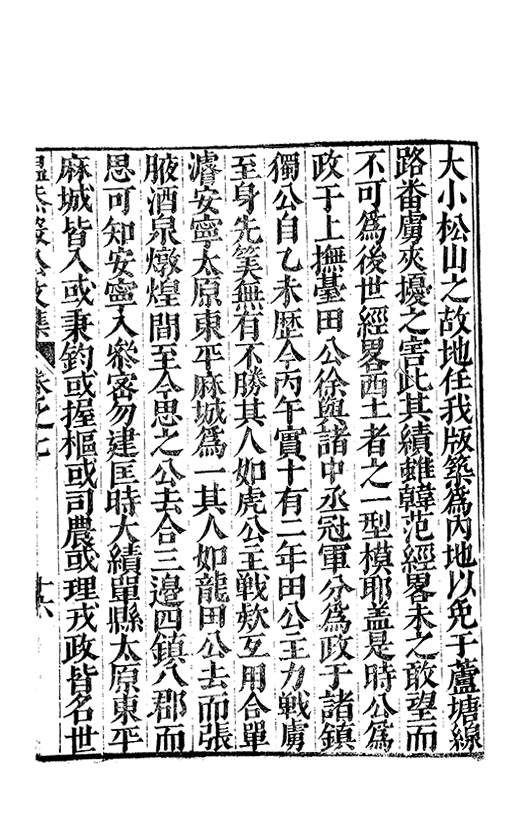 大小松山之故地任我版築為內地以免于蘆塘線
路番虜夾擾之害此其績雖韓范經畧未之敢望而
不可為後世經畧西土者之一型模耶盖是時公為
政于上撫臺田公徐與諸中丞冠軍分為政于諸鎮
獨公自乙未歷今丙午實十有二年田公主力戰虜
至身先笑無有不勝其人如虎公主戰欵互用合單
濬安寧太原東平麻城為一其人如龍田公去而張
腋酒泉燉煌間至今思之公去合三邊四鎮八郡而
思可知安寧入叅密勿建匡時大績單縣太原東平
麻城皆入或秉鈞或握樞或司農或理戎政皆名世
温恭毅公文集 卷之七 廿六